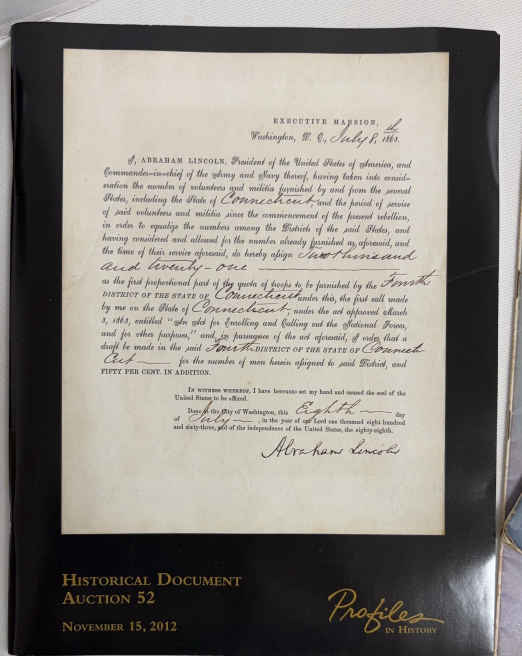 EXECUTIVE MANSION,
Washington, D. C., July 8,th 1863.
I, ABRAHAM LINCOLN, President of the United States of America, and
Commander-in-chief of the Army and Navy thereof, having taken into consid-
eration the number of volunteers and militia furnished by and from the several
States, including the State of Connecticut, and the period of service
of said volunteers and militia since the commencement of the present rebellion,
in order to equalize the numbers among the Districts of the said States, and
having considered and allowed for the number already furnished as aforesaid, and
the time of their service aforesaid, do hereby assign Two thousand
and twenty-one
as the first proportional part of the quota of troops to be furnished by the Fourth
DISTRICT OF THE STATE OF Connecticut under this, the first call made
by me on the State of Connecticut, under the act approved March
3, 1863, entitled "An Act for Enrolling and Calling out the National Forces,
and for other purposes," and, in pursuance of the act aforesaid, I order that a
draft be made in the said Fourth DISTRICT OF THE STATE OF Connecti
cut for the number of men herein assigned to said District, and
FIFTY PER CENT. IN ADDITION.
IN WITNESS WHEREOF, I have hereunto set my hand and caused the seal of the
United States to be affixed.
Done at the City of Washington, this Eighth day
of July, in the year of our Lord one thousand eight hundred
and sixty-three, and of the independence of the United States, the eighty-eighth.
Abraham Lincoln
HISTORICAL DOCUMENT
AUCTION 52
NOVEMBER 15, 2012
Profiles
IN HISTORY